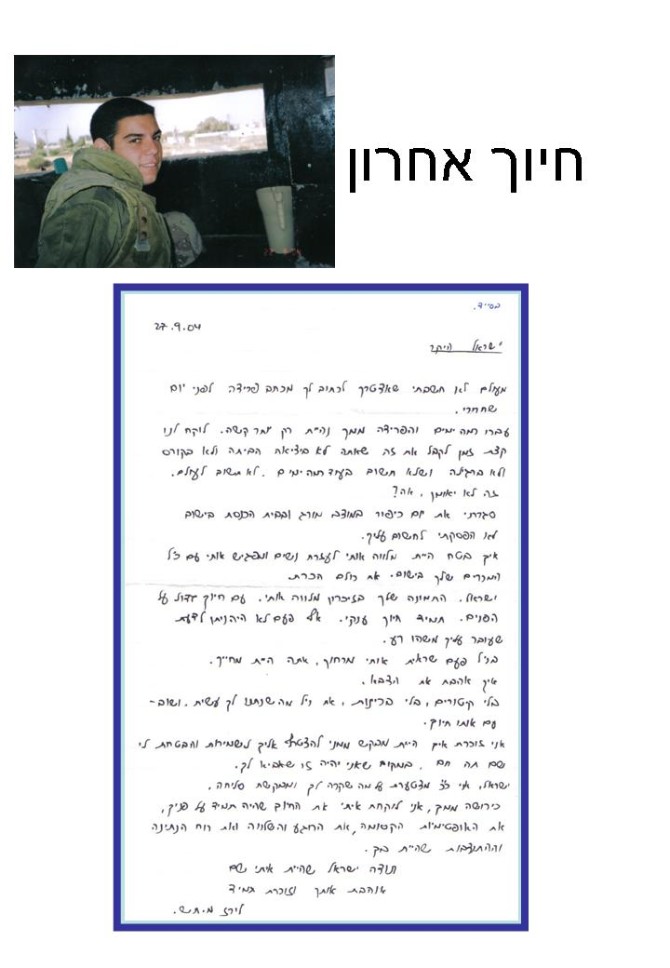 חיוך אחרון
בס״ד.
27.9.04
ישראל היקר
מעולם לא חשבתי שאצטרך לכתוב לך מכתב פרידה לפני יום
שחרורי.
עברו כמה ימים והפרידה ממך נהיית רק יותר קשה. לוקח לנו
קצת זמן לקבל את זה שאתה לא ביציאה הביתה ולא בקורס
ולא ברגילה ושלא תשוב בעוד כמה ימים. לא תשוב לעולם.
זה לא יאומן, אה?
סגרתי את יום כיפור במוצב מורג ובבית הכנסת בישוב
לא הפסקתי לחשוב עליך.
איך בטח היית מלווה אותי לעזרת נשים ומפגיש אותי עם כל
המכרים שלך בישוב. את כולם הכרת.
ישראל. התמונה שלך בזיכרון מלווה אותי. עם חיוך גדול על
הפנים. תמיד חיוך ענקי. אף פעם לא היה ניתן לדעת
שעובר עליך משהו רע.
בכל פעם שראית אותי מרחוק, אתה היית מחייך.
איך אהבת את הצבא.
בלי קיטורים, בלי פרינציות, את כל מה שנתנו לך עשית. ושוב-
עם אותו חיוך.
אני זוכרת איך היית מבקש ממני להצטרף אליך לשמירות והבטחת לי
שם תה חם, במקום שאני יהיה זו שאביא לך.
ישראל, אני כ״כ מצטערת על מה שקרה לך ומבקשת סליחה.
כירושה ממך, אני לוקחת איתי את החיוך שהיה תמיד על פניך,
את האופטימיות הקסומה, את הרוגע והשלווה ואת רוח הנתינה
וההתנדבות שהיית בך.
תודה ישראל שהיית איתי שם
אוהבת אותך וזוכרת תמיד
לירז